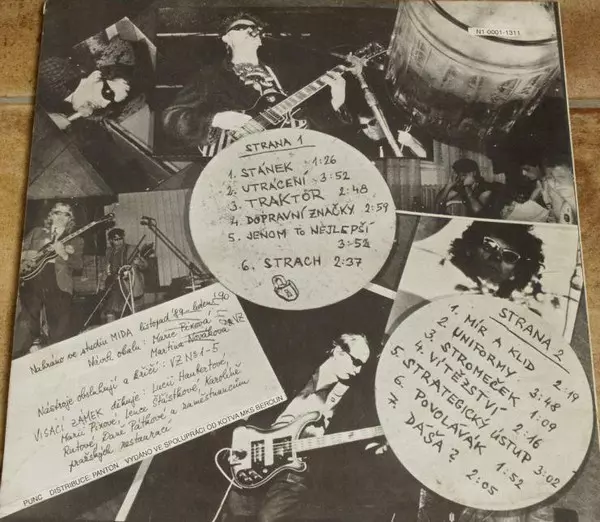 N1 0001-1311
STRANA 1
1. STÁNEK 1:26
2. UTRÁCENÍ 3:52
3. TRAKTŮR 2:48
4. DOPRAVNÍ ZNAČKY 2:59
5. JENOM TO NEJLEPŠÍ
3:52
6. STRACH 2:37
STRANA 2
1. MÍR A KLID 2:19
2. UNIFORMY 3:48
3. STROMEČEK 1:09
4. VÍTĚZSTVÍ 2:16
5. STRATEGICKÝ ÚSTUP 3:02
6. POVOLÁVÁK 1:52
7. DAŠA? 2:05
Nahráno ve studiu MIDA listopad '89 - leden '90
Návrh obalu: Marie Píxová,
Martina Nováková
Nástroje obsluhují a křičí: VZ Nº 1-5
VISACÍ ZÁMEK děkuje: Lucii Haukertové,
Marii Píxové, Lence Chústkové, Karolíně
Rutové, Daně Pátkové a zaměstnancům
pražských restaurací
PUNC DISTRIBUCE: PANTON VYDÁNO VE SPOLUPRÁCI OD KOTVA MKS BEROUN